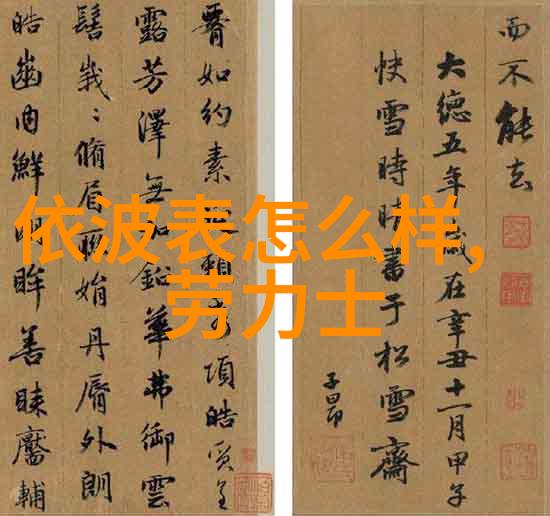 依波表怎么样,
劳力士
如約素延頸秀項皓質呈
露芳澤無加鉛華弗御雲
髻峩〻脩眉聯娟丹脣外朗
皓齒内鮮明眸善睞靨輔
而不能去
大德五年歲在辛丑十一月甲子
快雪時晴書于松雪齋
子昂